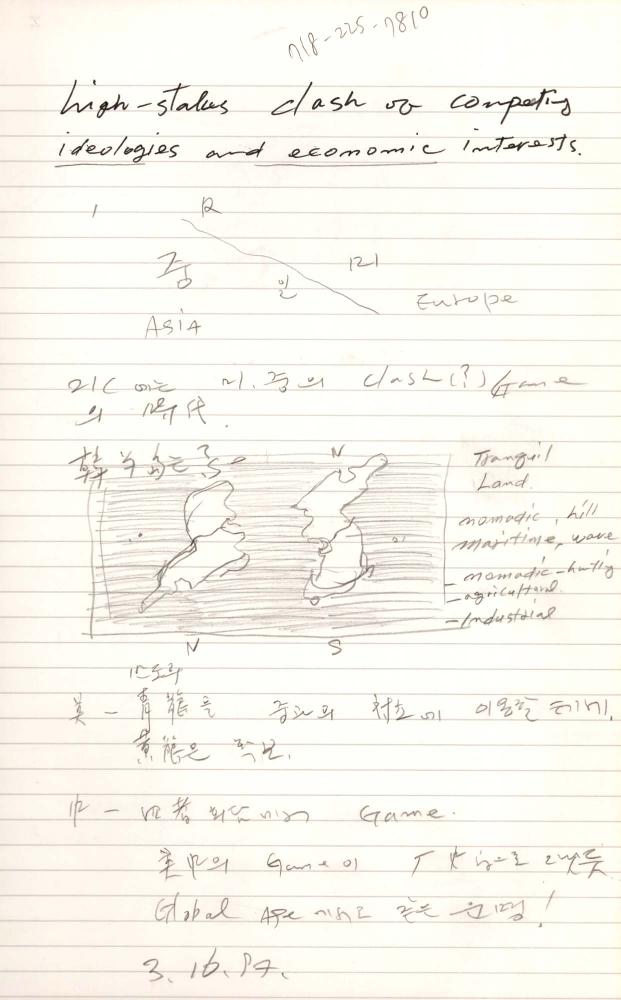 718-225-7810
high-stakes clash of competing
ideologies and economic interests.
1 R
중 일 미
Europe
ASIA
21C 에는 미.중의 clash(?) Game
의 時代.
韓半島는
N
Tranquil
Land.
nomadic, hill
maritime, wave
- nomadic-hunting
- agricultural.
- Industrial
N S
美 - 青龍을 중과의 에 이용할 테니.
黃龍은 확보.
中 - Game.
美中의 Game이 으로 끝났듯
Global Age 에서도 같은 운명!
3. 16. 97.